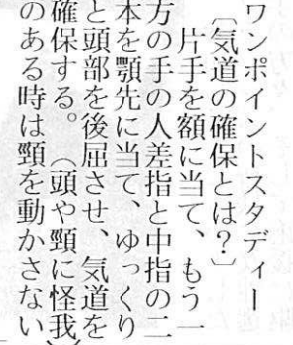 ワンポイントスタディー
〔気道の確保とは？〕
片手を額に当て、もう一
方の手の人差指と中指の二
本を顎先に当て、ゆっくり
と頭部を後屈させ、気道を
確保する。（頭や頸に怪我
のある時は頸を動かさない